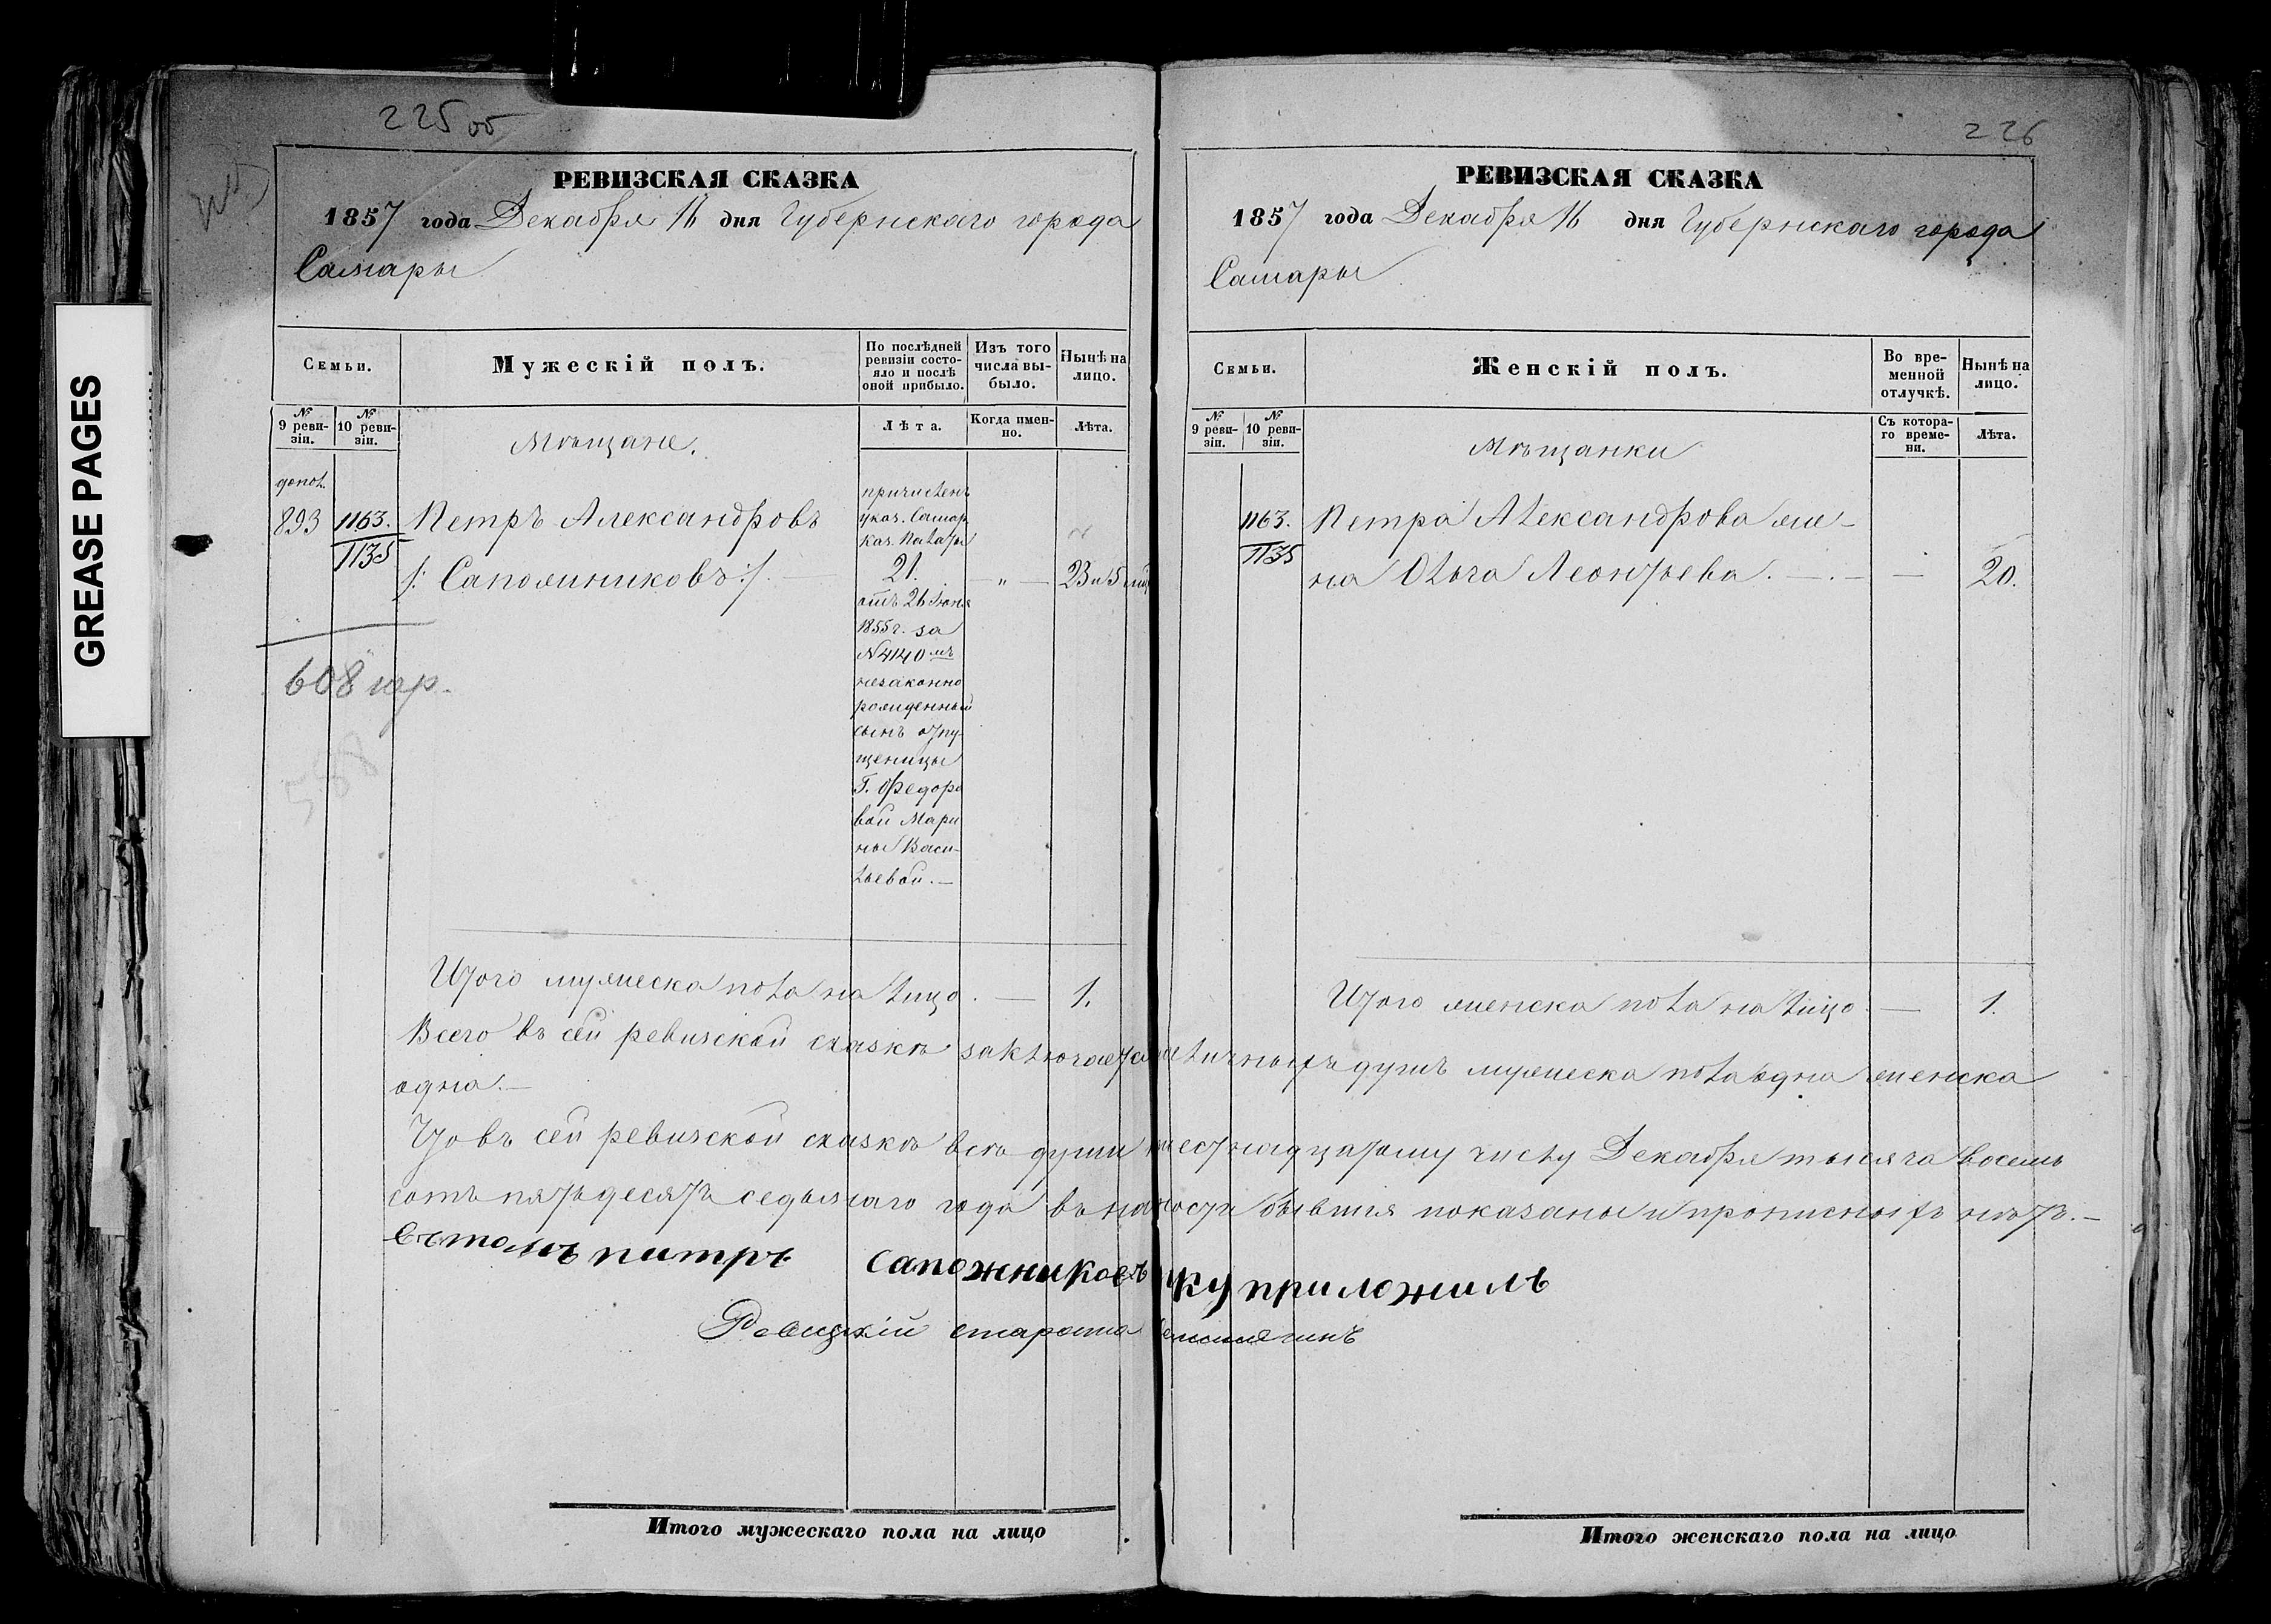 GREASE PAGES
225 об
РЕВИЗСКАЯ СКАЗКА
1857 года Декабря 16 дня Губернскаго города
Самары
Семьи.
Мужескій полъ.
По послѣдней ревизіи состояло и послѣ оной прибыло.
Изъ того числа выбыло.
Нынѣ на лицо.
№ 9 ревизіи.
№ 10 ревизіи.
Мѣщане.
Лѣта.
Когда именно.
Лѣта.
допол.
893
1163.
1135
Петръ Александровъ
/: Сапожниковъ :/.
причисленъ
указ. Самар
каз. Палаты
21.
отъ 26 Июня
1855 г. за
№ 4140 мъ
незаконно
рожденный
сынъ отпу-
щеницы
Г. Федоро
вой Мари
ны Васи-
льевой. —
— „ —
23 и 5 мѣ
608 шр.
588
Итого мужеска пола на лицо. — 1.
226
РЕВИЗСКАЯ СКАЗКА
1857 года Декабря 16 дня Губернскаго города
Самары
Семьи.
Женскій полъ.
Во временной отлучкѣ.
Нынѣ на лицо.
№ 9 ревизіи.
№ 10 ревизіи.
Мѣщанки
Съ котораго времени.
Лѣта.
1163.
1135
Петра Александрова же-
на Ольга Леонтьева. — . — — 20.
Итого женска пола на лицо. — 1.
Всего въ сей ревизской сказкѣ заключается наличныхъ душъ мужеска пола одна женска
одна. —
Что въ сей ревизской сказкѣ всѣ души шестнадцатому числу Декабря тысяча восемь
сотъ пятьдесятъ седьмаго года въ наличности бывшія показаны и прописныхъ нѣтъ. —
Въ томъ питръ сапожниковъ руку приложилъ
Ревизскій староста
Итого мужескаго пола на лицо
Итого женскаго пола на лицо